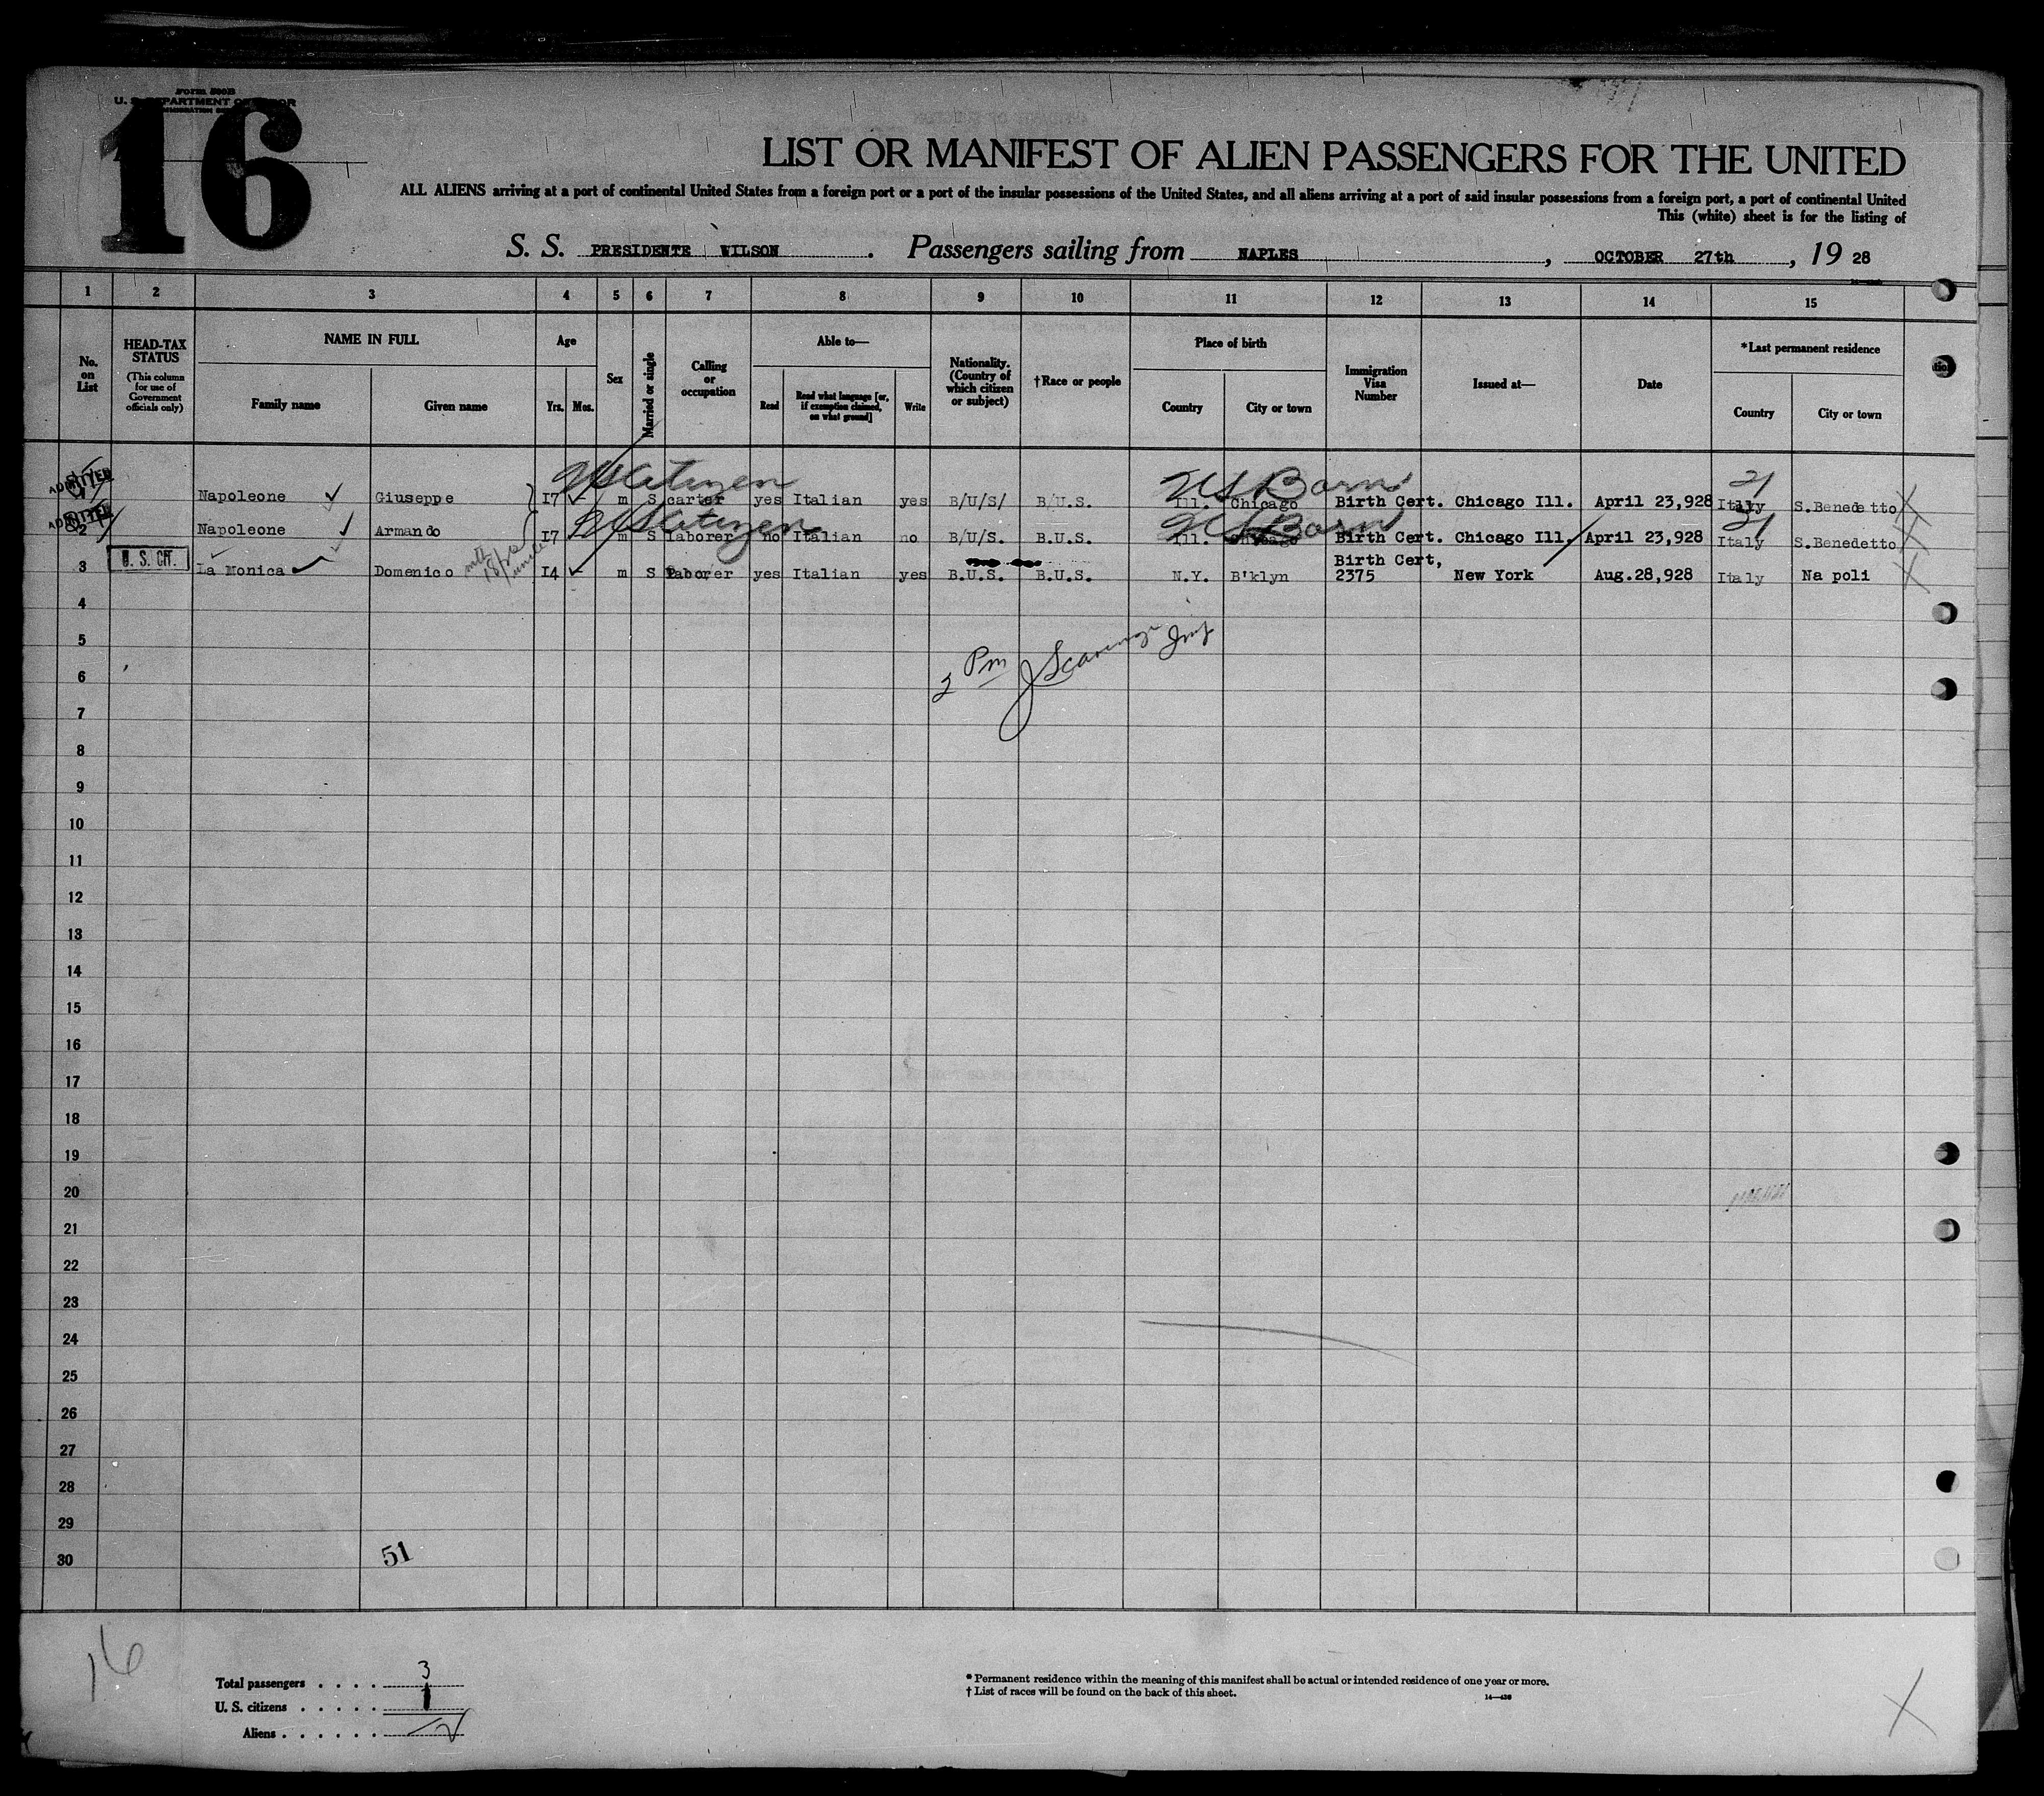 Form 500B
U. S. DEPARTMENT OF LABOR
IMMIGRATION
16
LIST OR MANIFEST OF ALIEN PASSENGERS FOR THE UNITED
ALL ALIENS arriving at a port of continental United States from a foreign port or a port of the insular possessions of the United States, and all aliens arriving at a port of said insular possessions from a foreign port, a port of continental United
This (white) sheet is for the listing of
S. S. PRESIDENTE WILSON. Passengers sailing from NAPLES, OCTOBER 27th, 19 28
1 2 3 4 5 6 7 8 9 10 11 12 13 14 15
No. on List
HEAD-TAX STATUS (This column for use of Government officials only)
NAME IN FULL Family name Given name
Age Yrs. Mos.
Sex
Married or single
Calling or occupation
Able to— Read Read what language [or, if exemption claimed, on what ground] Write
Nationality. (Country of which citizen or subject)
†Race or people
Place of birth Country City or town
Immigration Visa Number
Issued at—
Date
*Last permanent residence Country City or town
US Citizen US Born 21
ADMITTED Napoleone Giuseppe 17 - m S carter yes Italian yes B/U/S/ B/U.S. Ill. Chicago Birth Cert. Chicago Ill. April 23,928 Italy S.Benedetto
US Citizen US Born 21
ADMITTED 2 Napoleone Armando 17 m S laborer no Italian no B/U/S. B.U.S. Ill. Chicago Birth Cert. Chicago Ill. April 23,928 Italy S.Benedetto
U. S. CIT.
3 La Monica Domenico 14 - m S laborer yes Italian yes B.U.S. B.U.S. N.Y. B'klyn Birth Cert, 2375 New York Aug.28,928 Italy Na poli
4
5
2 Pm J Insp
6
7
8
9
10
11
12
13
14
15
16
17
18
19
20
21
22
23
24
25
26
27
28
29
30
51
16
Total passengers . . . . 3
U. S. citizens . . . . . 1
Aliens . . . . . . 2
* Permanent residence within the meaning of this manifest shall be actual or intended residence of one year or more.
† List of races will be found on the back of this sheet.
14—430
X